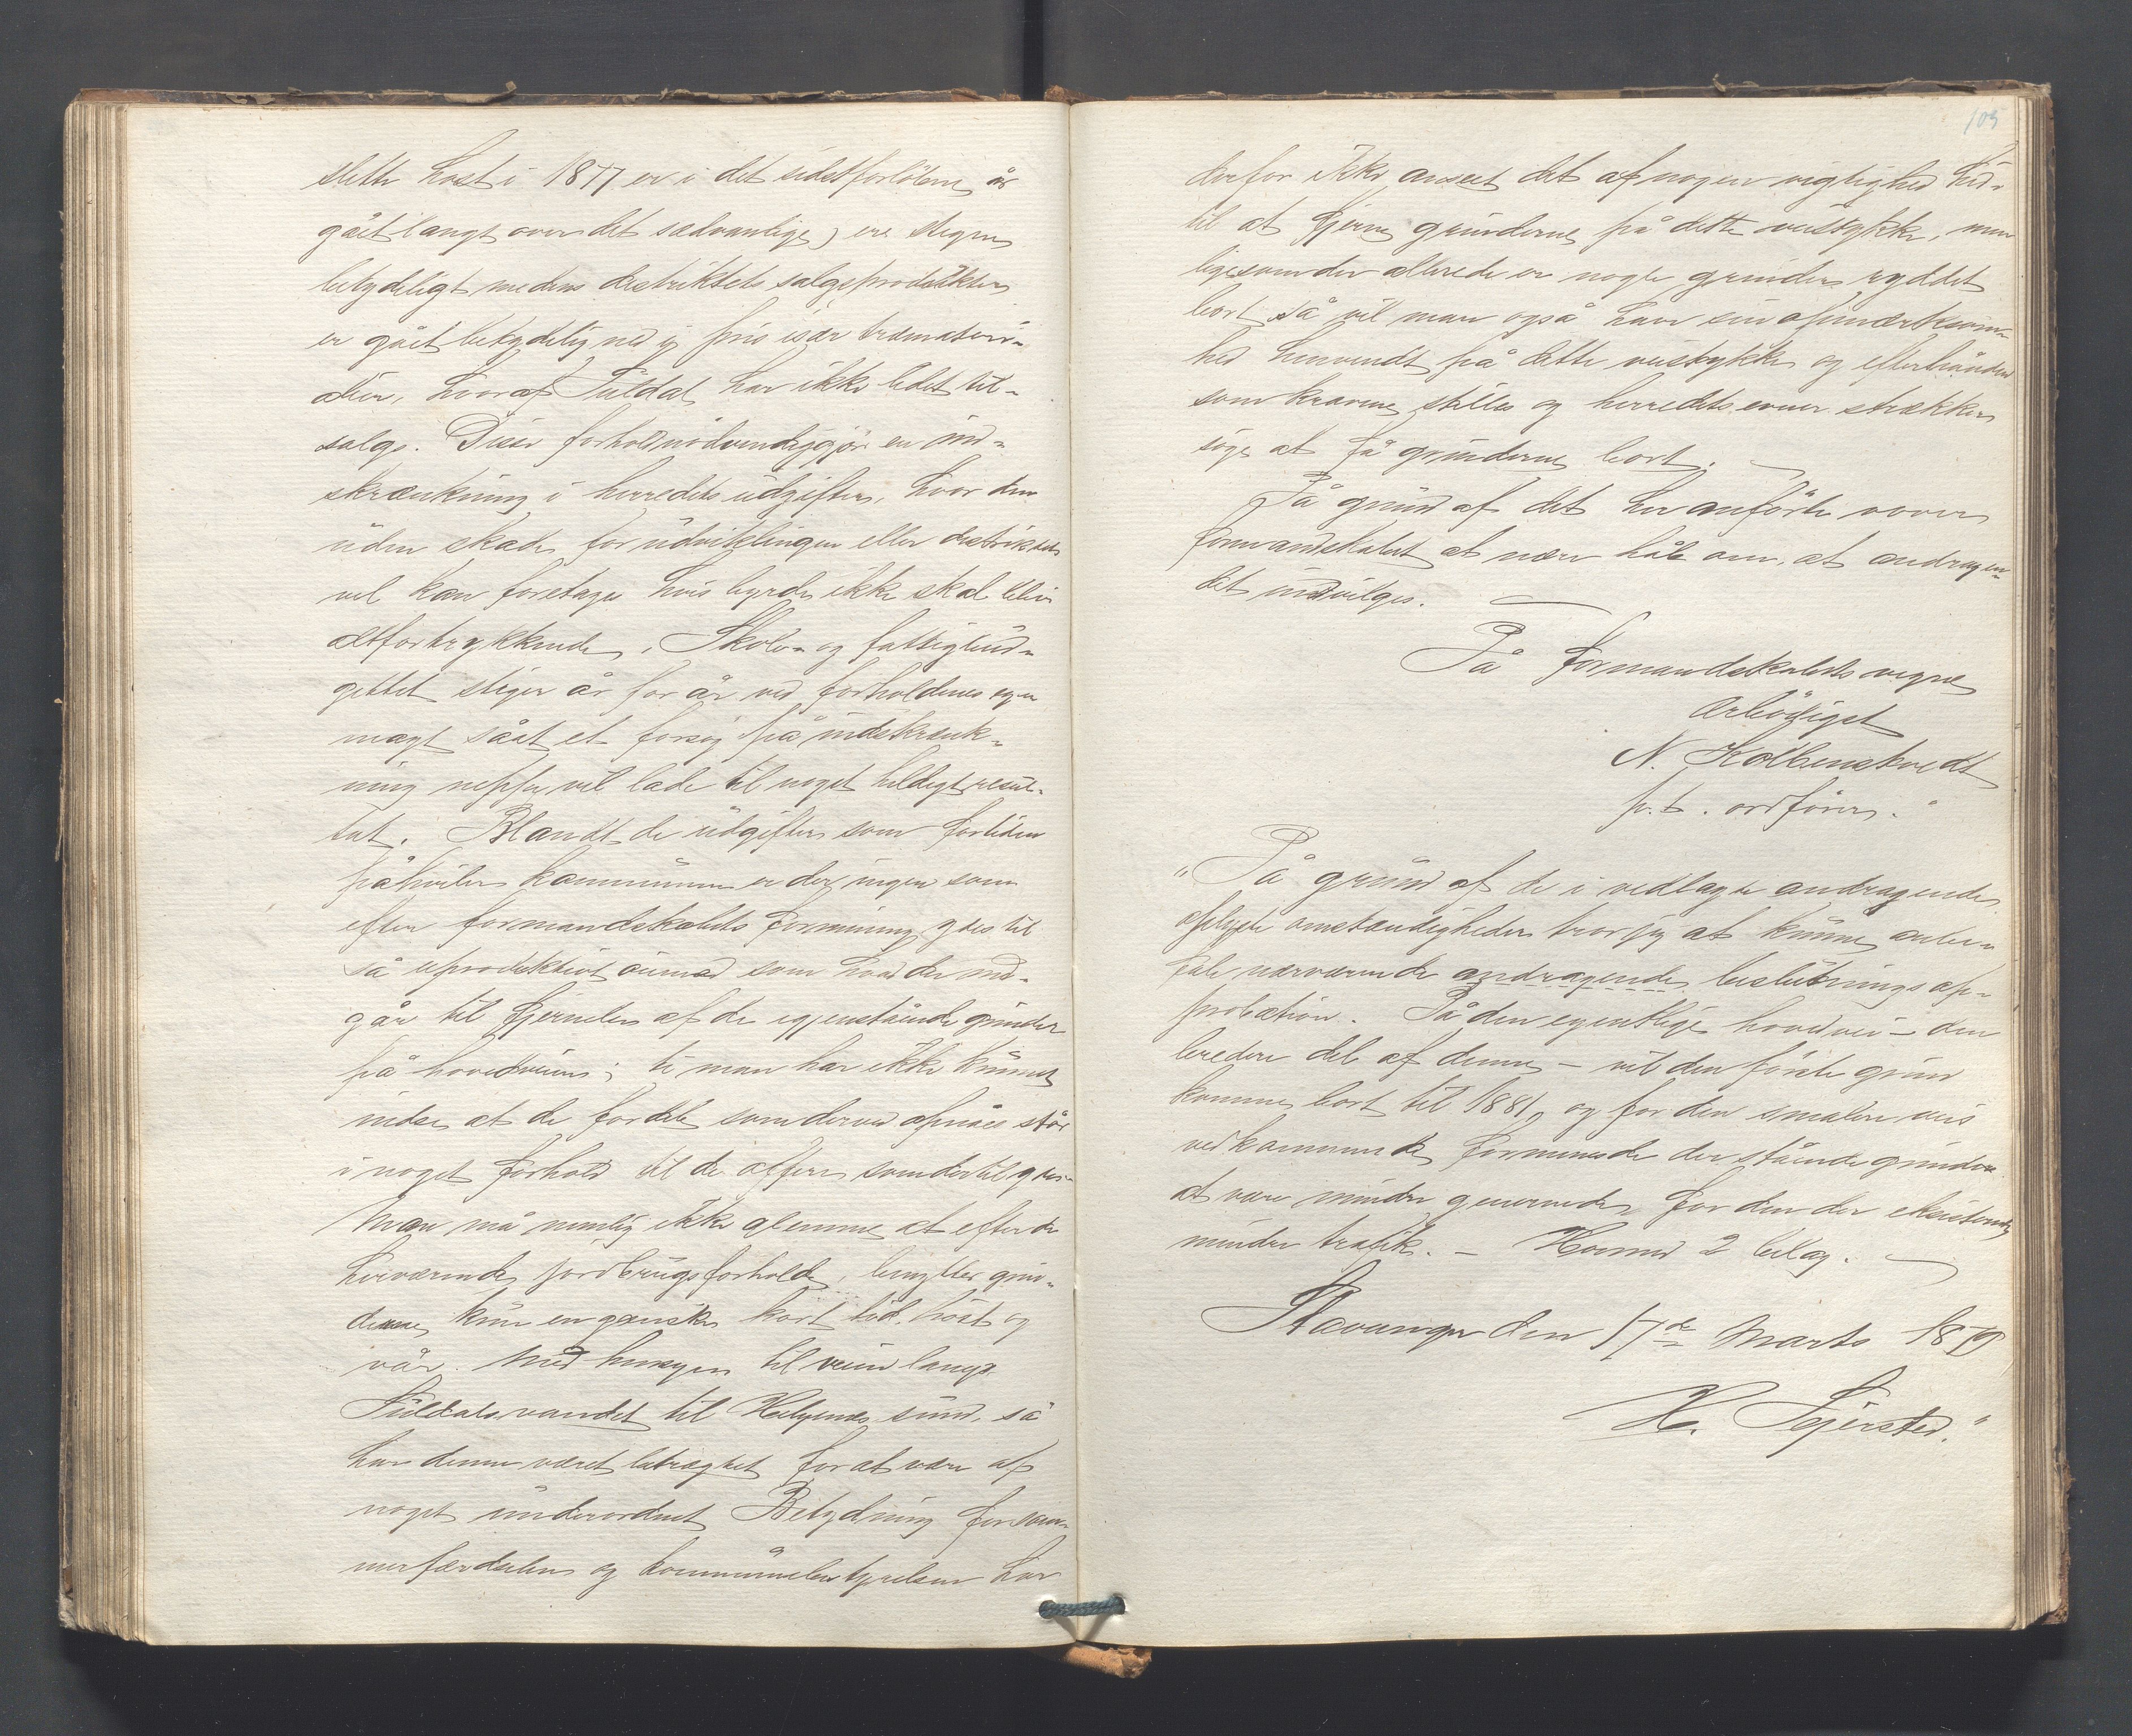 slette høst i 1877 er i det sidstforløbne år
gået langt over det sædvanlige) ere stegne
betydeligt medens distriktets salgsprodukter
er gået betydelig ned i pris især træmateri-
alier, hvoraf Suldal har ikke lidet til-
salgs. Disse forhold nødvendiggjør en ind-
skrænkning i herredets udgifter, hvor den
uden skade for udviklingen eller distriktets
vel kan foretages hvis byrden ikke skal blive
altfortrykkende. Skole- og fattigbud-
gettet stiger år for år ved forholdenes egen
magt såat et forsøg på indskrænk-
ning neppe vil lede til noget heldigt resul-
tat. Blandt de udgifter som fortiden
påhviler kommunen er der ingen som
efter formandskabets formening gåes til
så uproduktivt øiemed som hvad der med-
går til fjernelse af de igjenstående grinder
på hovedveien; ti man har ikke kunnet
indse at de fordele som derved opnåes står
i noget forhold til de offere som dertil gives.
Man må nemlig ikke glemme at efter de
herværende jordbrugsforholde, benyttes grin-
derne kun en ganske kort tid høst og
vår. Med hensyn til veien langs
Suldalsvandet til Helgenæs sund, så
har denne været betragtet for at være af
noget underordnet Betydning for som-
merfærdselen og kommunebestyrelsen har
103
derfor ikke anseet det af nogen vigtighed hid-
til at fjerne grinderne på dette veistykke, men
ligesom der allerede er nogle grinder ryddet
bort så vil man også have sin opmærksom-
hed henvendt på dette veistykke og efterhånden
som kravene stilles og herredets evner strækker
søge at få grinderne bort. —
På grund af det her anførte vover
formandskabet at nære håb om, at andragen-
det indvilges. —
På formandskabets vegne
ærbødigst
N. Kolbenstvedt
p.t. ordfører."
"På grund af de i vedlagte andragende
oplyste omstændigheder tror jeg at kunne anbe-
fale nærværende andragende beslutnings ap-
probation. På den egentlige hovedvei – den
bredere del af denne – vil den første grind
komme bort til 1881, og for den smalere veis
vedkommende formenes de der stående grinder
at være mindre generende for den der eksisterende
mindre trafik. – Hermed 2 bilag. —
Stavanger den 17de Marts 1879
H. Sejersted."